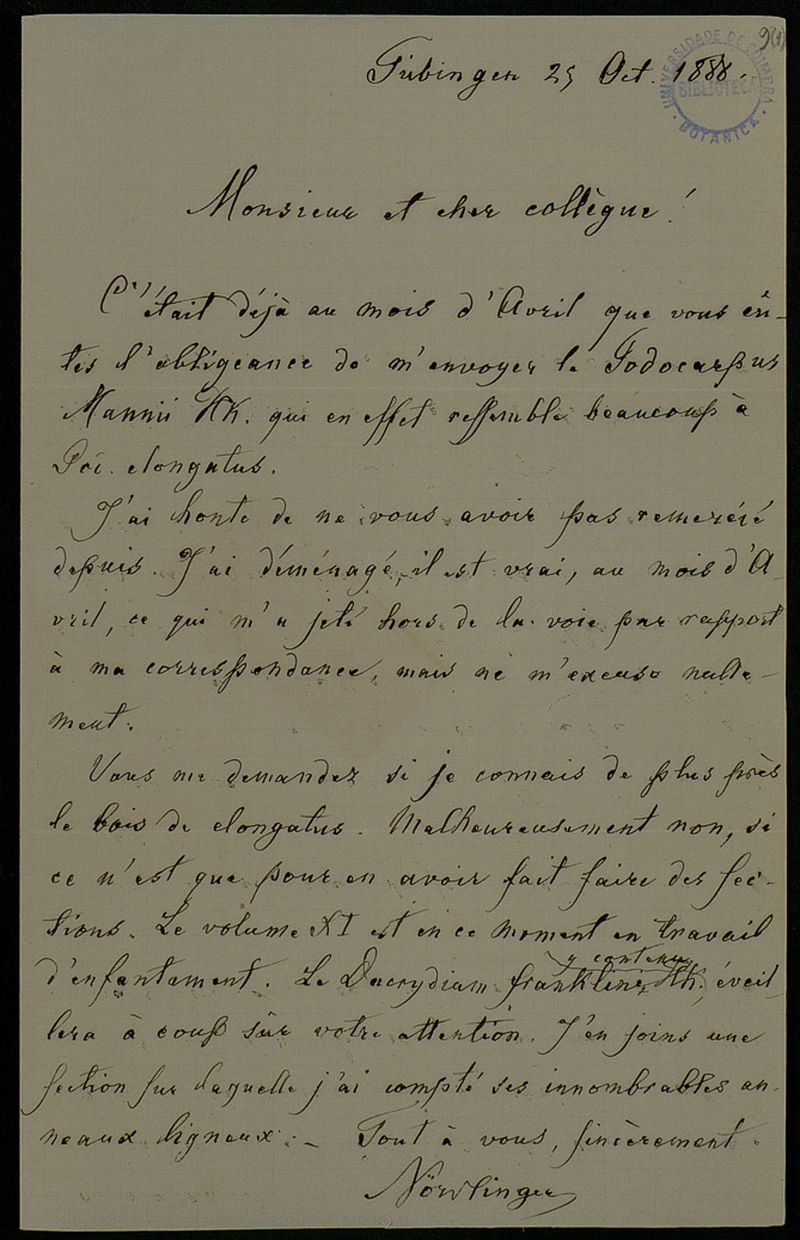 9(1)
UNIVERSIDADE DE COIMBRA
BIBLIOTECA
BOTANICA
Tübingen 25 Oct. 1888.
Monsieur et cher collègue!
C'était déjà au mois d'Avril que vous eû-
tes l'obligeance de m'envoyer le Podocarpus
Mannii HK. qui en effet ressemble beaucoup à
Poc. elongatus.
J'ai honte de ne vous avoir pas remercié
depuis. J'ai déménagé, il est vrai, au mois d'A-
vril, ce qui m'a jeté hors de la voie par rapport
à ma correspondance, mais ne m'excuse nulle-
ment.
Vous me demandez si je connais de plus près
le bois de elongatus. Malheureusement non, si
ce n'est que pour en avoir fait faire des sec-
tions. Le volume XI est en ce moment en travail
y contenu
d'enfantement. Le Dacrydium franklini HK. éveil-
lera à coup sûr votre attention. J'en joins une
section sur laquelle j'ai compté ses innombrables an-
neaux ligneux. – Tout à vous, sincèrement
Nördlinger